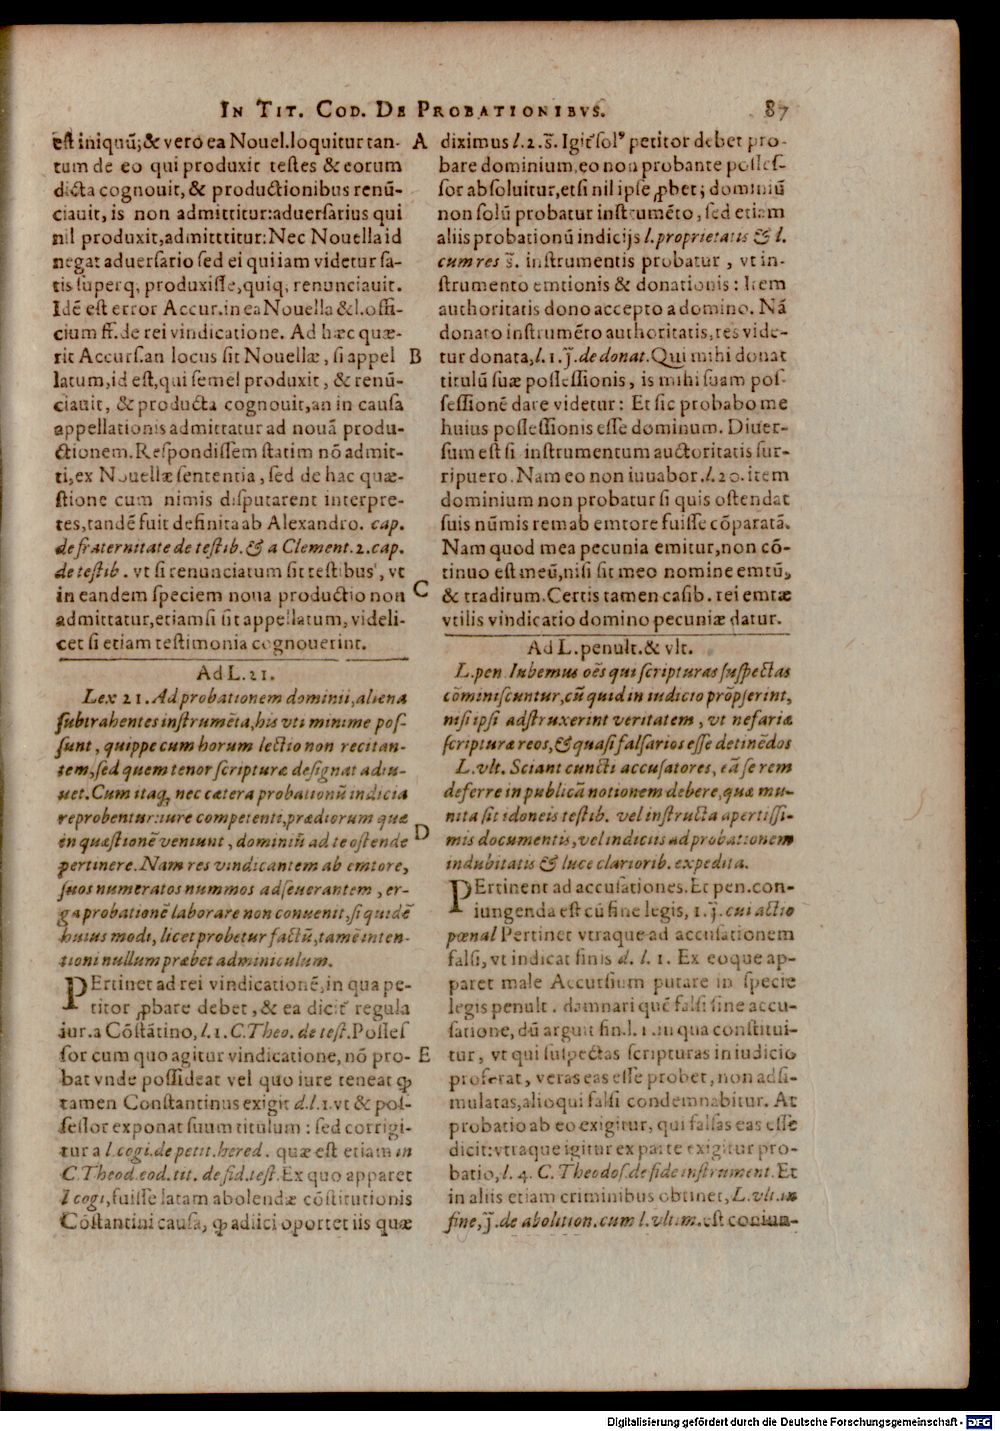 IN TIT. COD. DE PROBATIONIBVS. 87
est iniquũ;& vero ea Nouel.loquitur tan-
tum de eo qui produxit testes & eorum
dicta cognouit, & productionibus renũ-
ciauit, is non admittitur:aduersarius qui
nil produxit,admitttitur: Nec Nouella id
negat aduersario sed ei qui iam videtur sa-
tis superq; produxisse,quiq; renunciauit.
Idē est error Accur.in ea Nouella &l.offi-
cium ff.de rei vindicatione. Ad hæc quæ-
rit Accurs.an locus sit Nouellæ, si appel
latum,id est,qui semel produxit, & renũ-
ciauit, & producta cognouit,an in causa
appellationis admittatur ad nouā produ-
ctionem.Respondissem statim nō admit-
ti,ex Nouellæ sententia, sed de hac quæ-
stione cum nimis disputarent interpre-
tes,tandē fuit definita ab Alexandro. cap.
de fraternitate de testib. & a Clement.2.cap.
de testib. vt si renunciatum sit testibus, vt
in eandem speciem noua productio non
admittatur,etiamsi sit appellatum, videli-
cet si etiam testimonia cognouerint.
Ad L. 21.
Lex 21. Ad probationem dominii,aliena
subtrahentes instrumēta,his vti minime pos-
sunt, quippe cum horum lectio non recitan-
tem,sed quem tenor scripturæ designat adiu-
uet.Cum itaq; nec cætera probationũ indicia
reprobentur:iure competenti,prædiorum quæ
in quæstionē veniunt, dominiũ ad te ostende
pertinere. Nam res vindicantem ab emtore,
suos numeratos nummos adseuerantem, er-
ga probationē laborare non conuenit,si quidē
huius modi, licet probetur factũ,tamē inten-
tioni nullum præbet adminiculum.
PErtinet ad rei vindicationē,in qua pe-
titor ꝓbare debet, & ea dicit' regula
iur.a Cōstātino, l.1.C.Theo. de test.Posses
sor cum quo agitur vindicatione, nō pro-
bat vnde possideat vel quo iure teneat ꝙ
tamen Constantinus exigit d.l.1.vt & pos-
sessor exponat suum titulum : sed corrigi-
tur a l.cogi.de petit.hered. quæ est etiam in
C.Theod.eod.tit. de fid.test.Ex quo apparet
l cogi,fuisse latam abolendæ cōstitutionis
Cōstantini causa, ꝙ adiici oportet iis quæ
A
B
C
D
E
diximus l.2.s̄. Igit' sol' petitor debet pro-
bare dominium,eo non probante posses-
sor absoluitur,etsi nil ipse ꝓbet; dominiũ
non solũ probatur instrumēto, sed etiam
aliis probationũ indicijs l.proprietatis & l.
cum res s̄. instrumentis probatur, vt in-
strumento emtionis & donationis : Item
authoritatis dono accepto a domino. Nā
donato instrumēto authoritatis,res vide-
tur donata,l.1.j̄.de donat.Qui mihi donat
titulũ suæ possessionis, is mihi suam pos-
sessionē dare videtur : Et sic probabo me
huius possessionis esse dominum. Diuer-
sum est si instrumentum auctoritatis sur-
ripuero.Nam eo non iuuabor.l.20.item
dominium non probatur si quis ostendat
suis nũmis rem ab emtore fuisse cōparatā.
Nam quod mea pecunia emitur,non cō-
tinuo est meũ,nisi sit meo nomine emtũ,
& traditum.Certis tamen casib. rei emtæ
vtilis vindicatio domino pecuniæ datur.
Ad L.penult.& vlt.
L.pen Iubemus oēs qui scripturas suspectas
cōminiscuntur,cũ quid in iudicio prōpserint,
nisi ipsi adstruxerint veritatem, vt nefariæ
scripturæ reos,& quasi falsarios esse detinēdos
L.vlt. Sciant cuncti accusatores, eā se rem
deferre in publicā notionem debere,quæ mu-
nita sit idoneis testib. vel instructa apertissi-
mis documentis,vel indiciis ad probationem
indubitatis & luce clariorib. expedita.
PErtinent ad accusationes.Et pen.con-
iungenda est cũ fine legis, 1.j̄.cui actio
pœnal Pertinet vtraque ad accusationem
falsi, vt indicat finis d. l. 1. Ex eoque ap-
paret male Accursium putare in specie
legis penult. damnari quē falsi sine accu-
satione, dũ arguit fin.l.1.in qua constitui-
tur, vt qui suspectas scripturas in iudicio
proferat, veras eas esse probet,non adsi-
mulatas,alioqui falsi condemnabitur. At
probatio ab eo exigitur, qui falsas eas esse
dicit:vtraque igitur ex parte exigitur pro-
batio, l. 4. C. Theodos.de fide instrument.Et
in aliis etiam criminibus obtinet, L.vlt.in
fine,j̄.de abolition.cum l.vltim.est coniun-
Digitalisierung gefördert durch die Deutsche Forschungsgemeinschaft - DFG